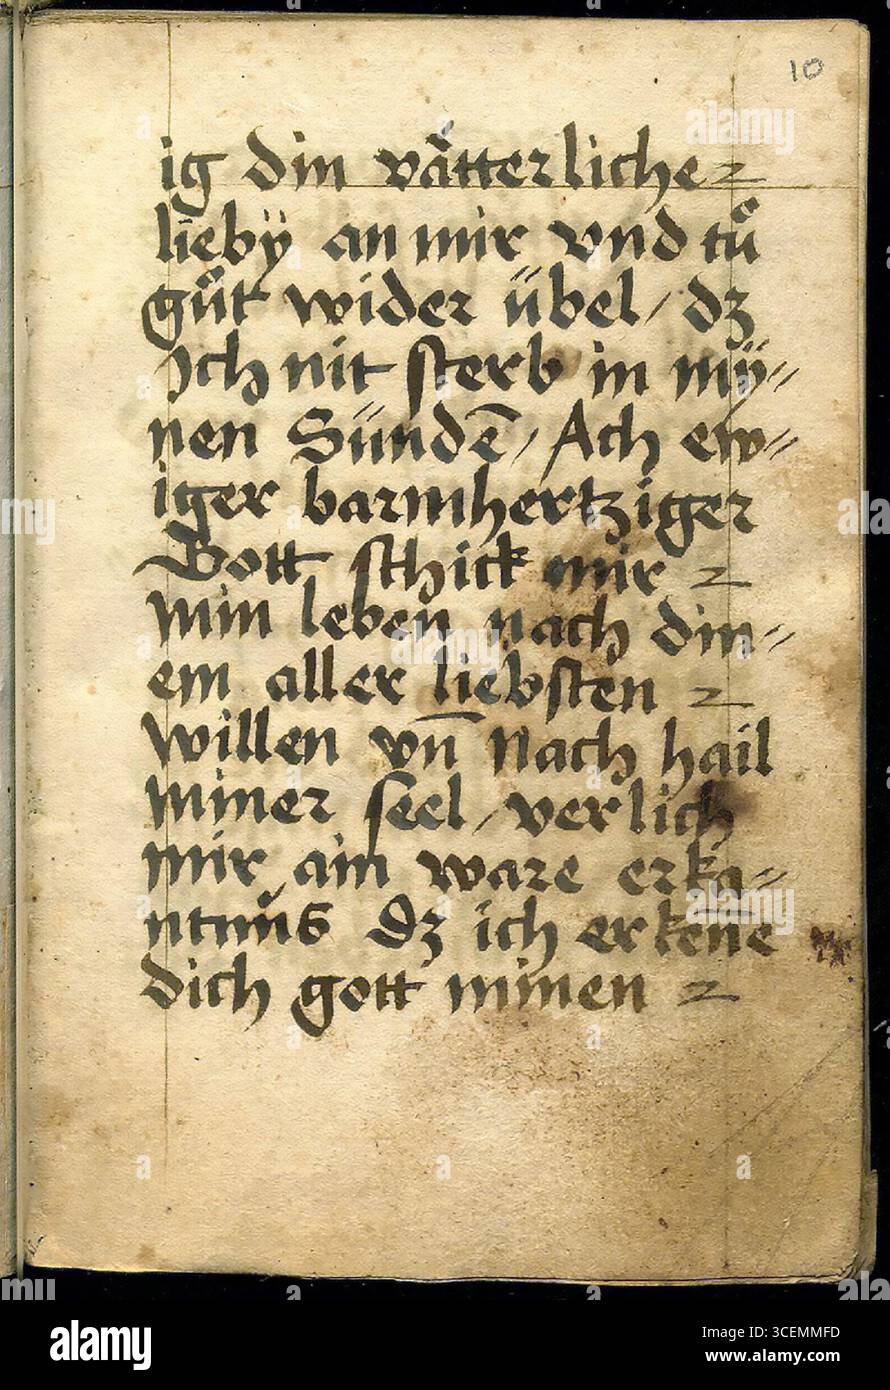 10
ig din vätterliche
liebÿ an mir vnd tuͦ
guͦt wider übel / dz
Ich nit sterb in mÿ⸗
nen Sündē / Ach ew⸗
iger barmhertziger
Gott schick mir
min leben nach din⸗
em aller liebsten
willen vn̄ nach hail
miner seel / verlich
mir ain ware erka⸗
ntnuͦs dz ich erken̄e
dich gott minen
alamy
Image ID: 3CEMMFD
www.alamy.com